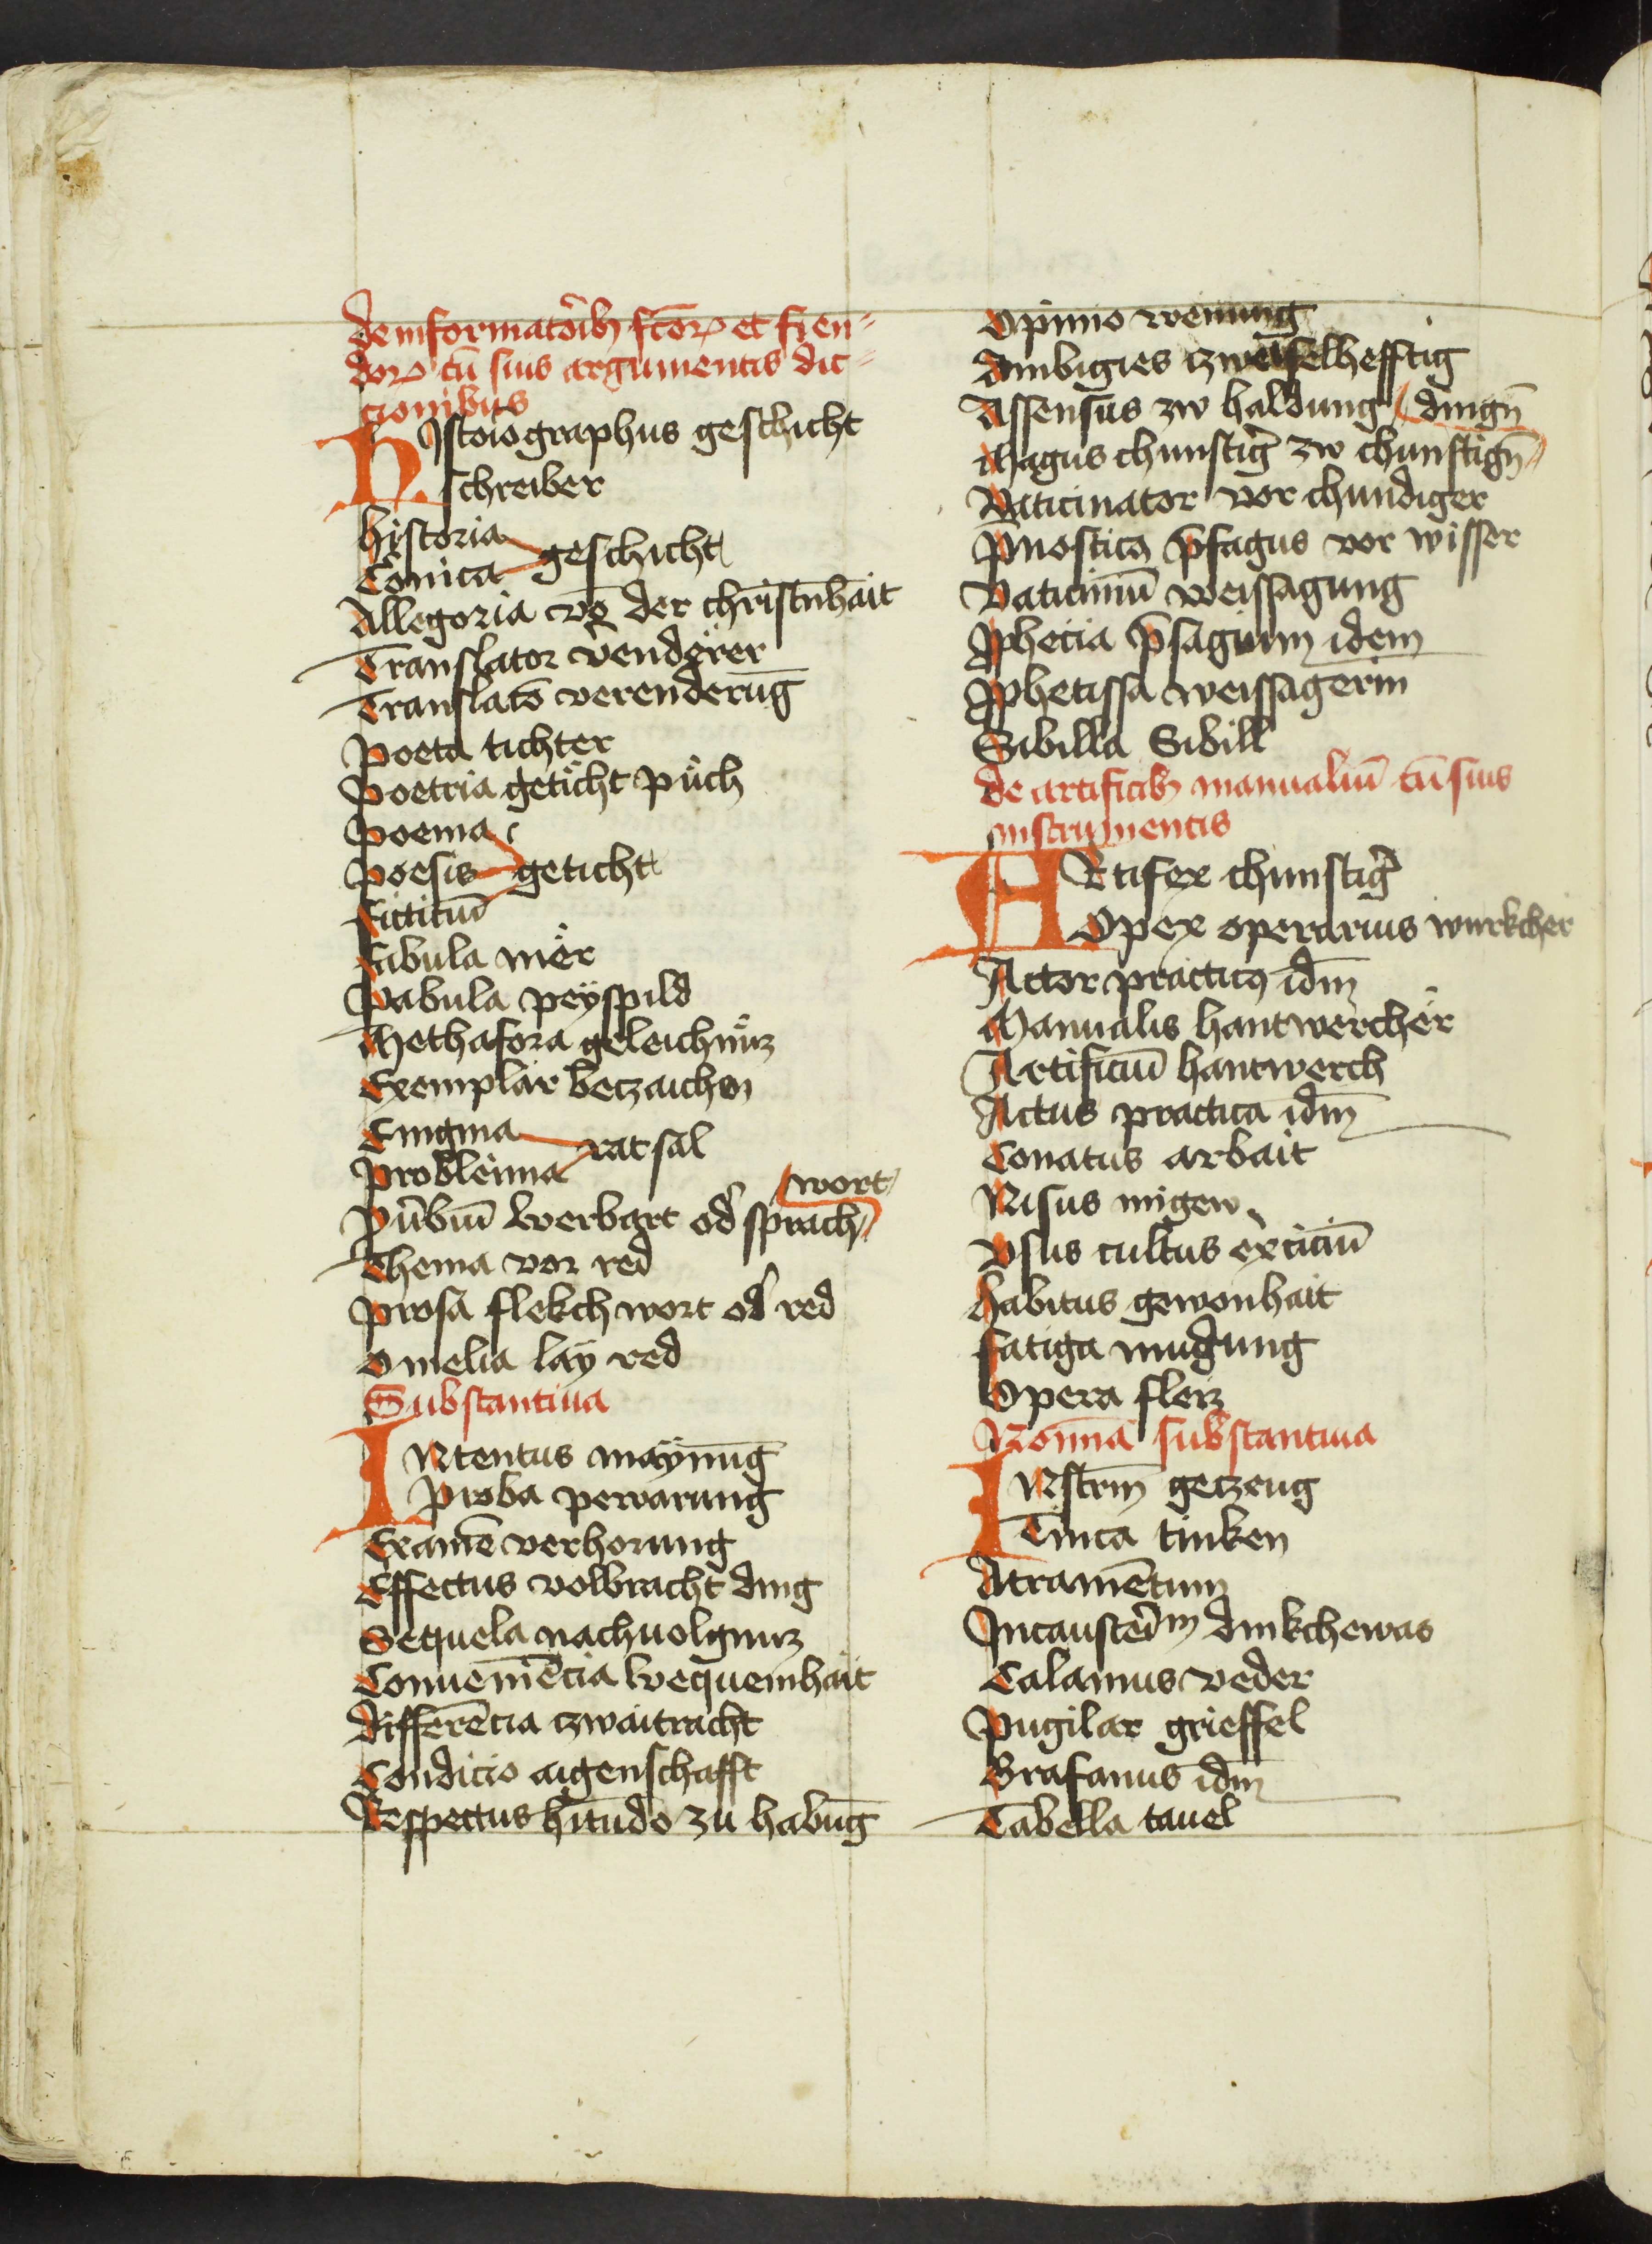 de informatorib₉ sc̄oꝝ et fien-
doꝝ cū suis argumentis dic-
cionibus
HIstoiographus geschicht
schreiber
historia
Conica geschicht
Allegoria vō der christnhait
Translator v̉enderer
Translatō verenderūg
Poeta tichter
Poetria geticht půch
Poema
Poesis geticht
Fictitiū
Fabula mër
Pabula peÿspild
Methafora geleichnüz
Exemplar betzaichen
Enigma
Probleima ratsal
wort
Pu̇biū werbart od̉ sprach
Thema vor red
Prosa flekch wort od̉ red
Omelia laÿ red
Substantiua
INtentus maÿnūg
Proba pewarung
Examē verhorung
Effectus volbracht ding
Sequela nachuolgnuz
Conueniēcia bequemhait
Differēcia zwaitracht
Condicio aigenschafft
Respectus hītudo zu habūg
Opinio wenung
Ambigies zweifelhefftig
Assensus zw haldung dingn̄
Magus chunstig̉ zw chunftign̄
Vaticinator vor chundiger
Pnosticꝰ p̄sagus vor wisser
Vaticiniū weissagung
Ꝓphecia p̄sagium idem
Ꝓphetissa weissagerin
Sibilla Sibill
de artificib₉ manualiū cū suis
instrumentis
ARtifex chunstig̉
Opex operarius wurkcher
Actor practicꝰ idm̄
Manualis hantwercher
Artificiū hantwerch
Actus practica idm̄
Conatus arbait
Nisus migew
Vsus cultus ex̉iciū
Habitus gewonhait
Fatiga mudung
Opera fleiz
Nomīa substantiua
INstrm̄ getzeug
Tinca tinken
Atramētum
Incaustēm dinkchewas
Calamus veder
Pugilar grieffel
Grafanus idm̄
Tabella tauel